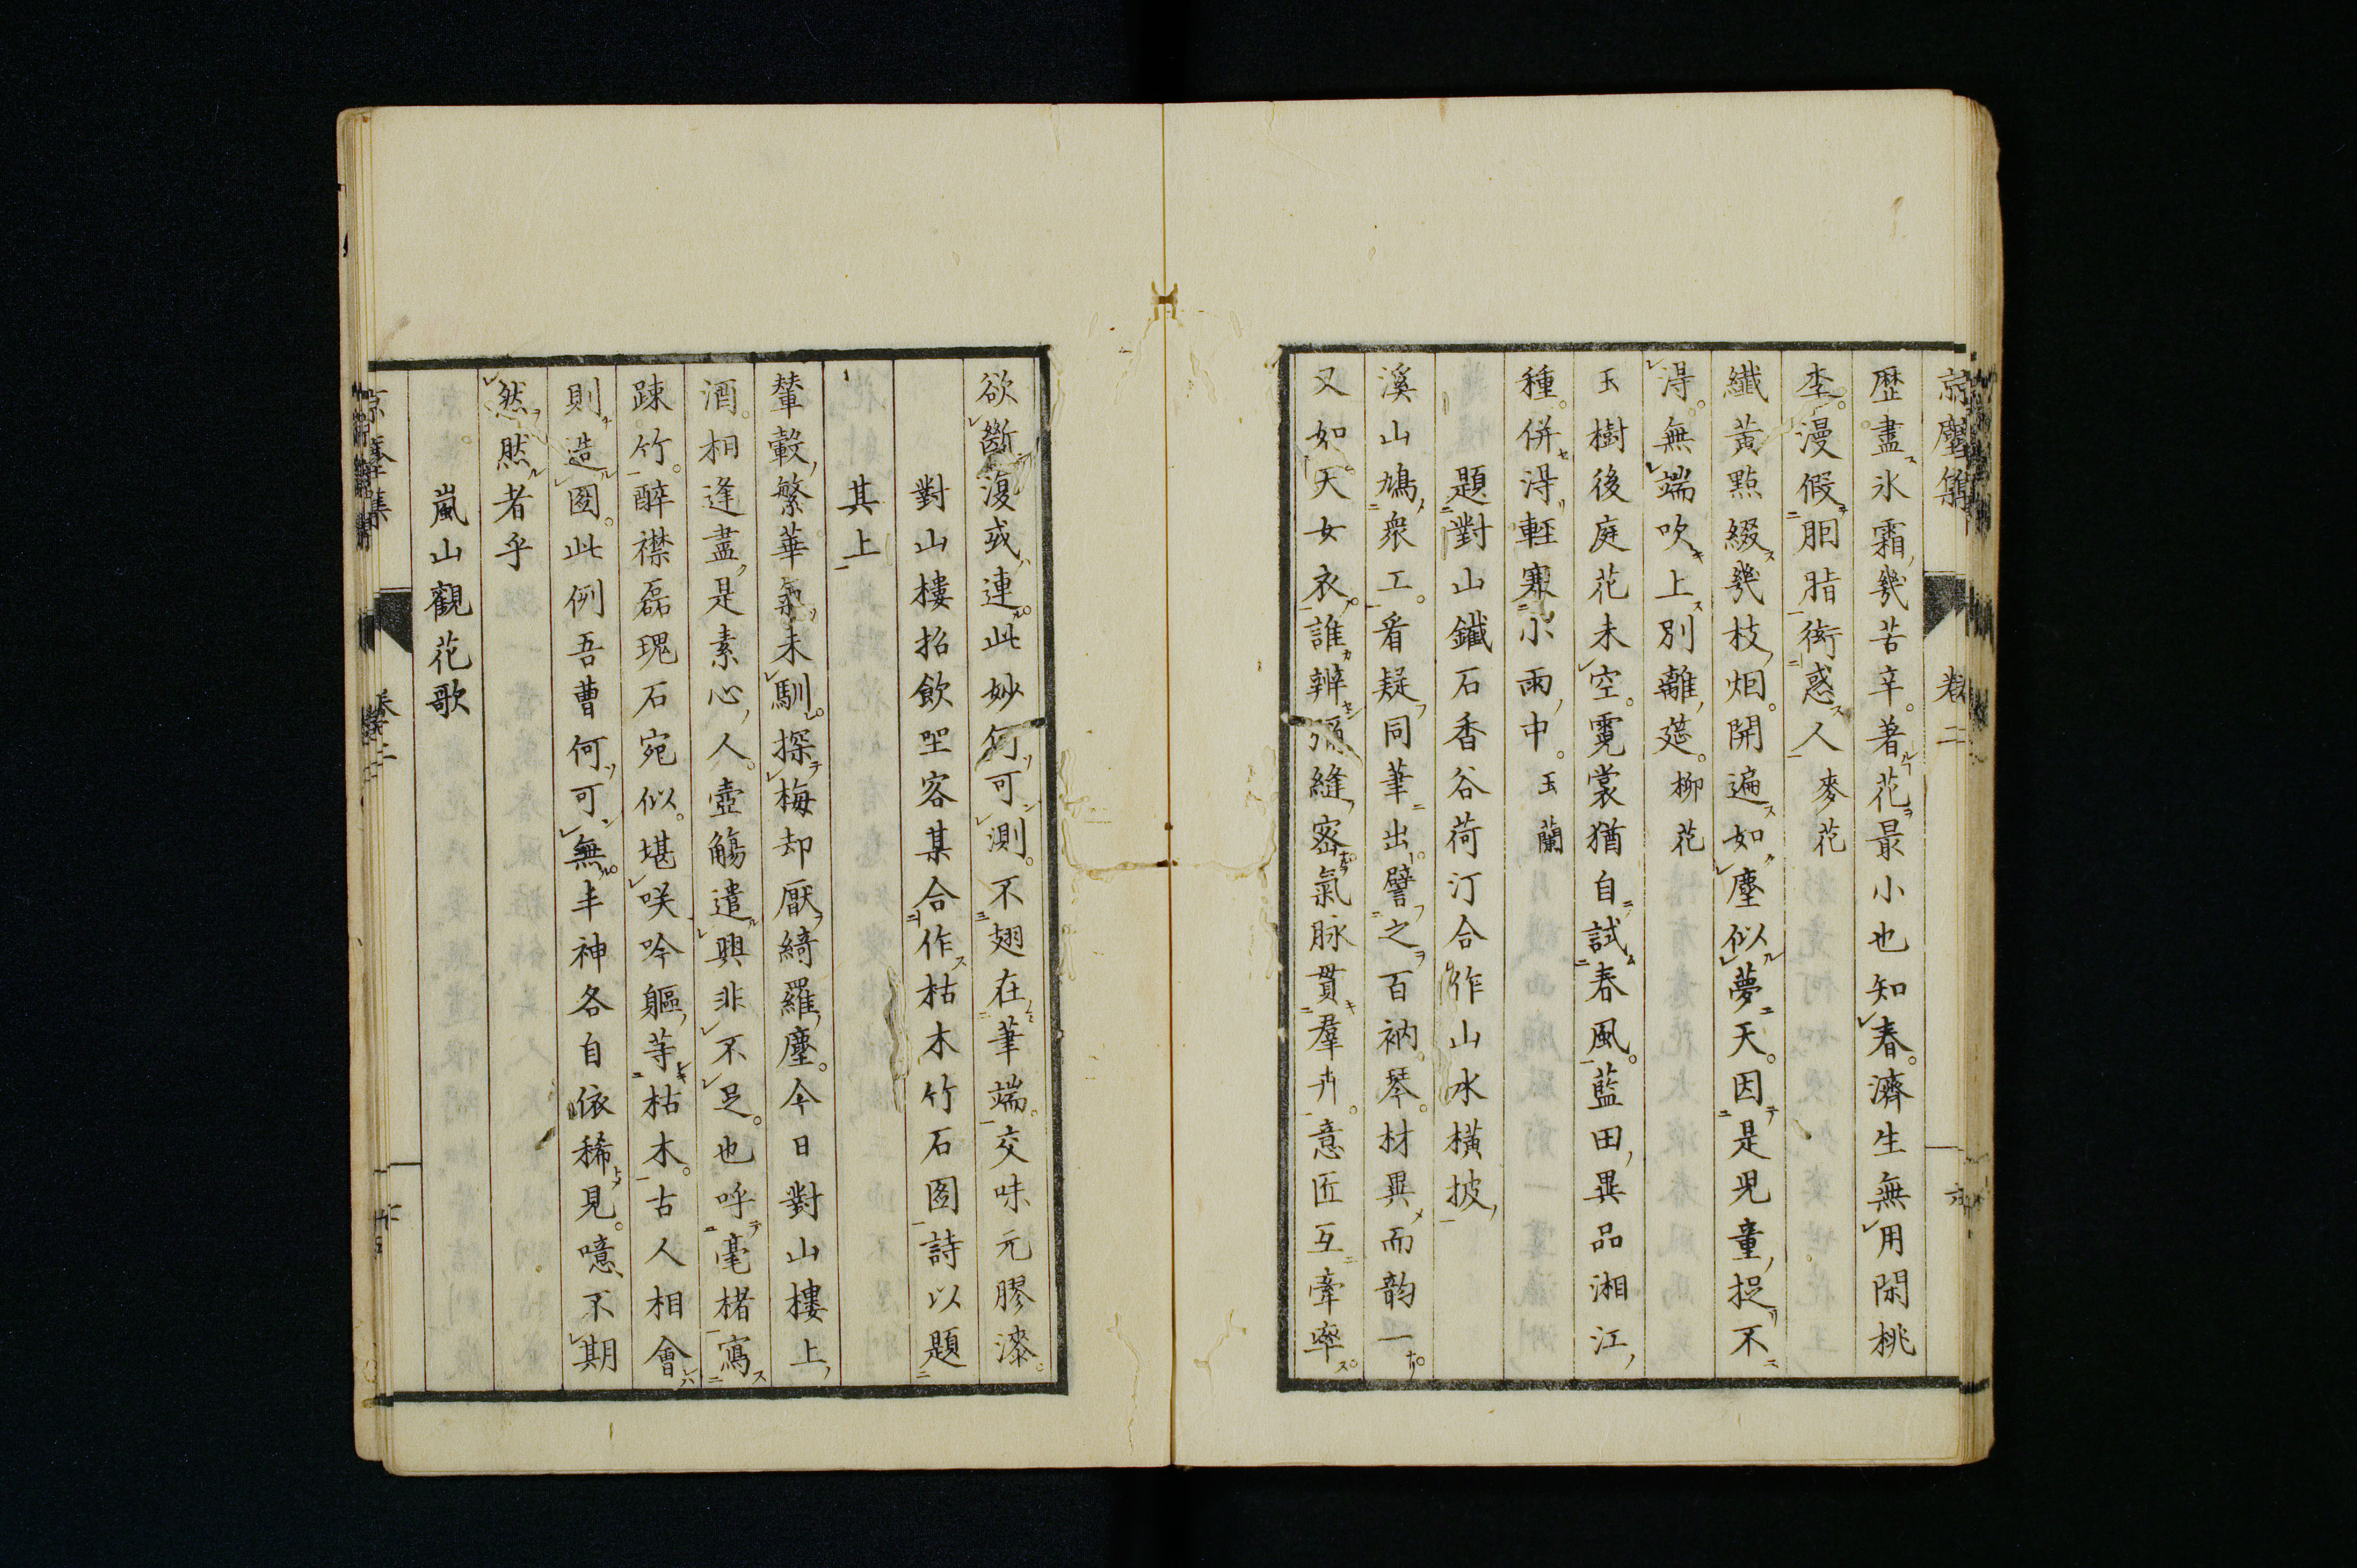 京塵集 卷二 六
歴盡氷霜幾苦辛著花最小也知春濟生無用閑桃
李漫假胭脂衒惑人 麥花
纖黃點綴幾枝烟開遍如塵似夢天因是児童捉不
得無端吹上別離筵 柳花
玉樹後庭花未空霓裳猶自試春風藍田異品湘江
種併得輕寒小雨中 玉蘭
題對山鐵石香谷荷汀合作山水橫披
溪山鳩衆工看疑同筆出譬之百衲琴材異而韵一
又如天女衣誰辨彌縫密氣脉貫羣卉意匠互牽率
欲斷復或連此妙何可測不翅在筆端交味元膠漆
對山樓招飲坐客某合作枯木竹石圖詩以題
其上
輦轂繁華氣未馴探梅却厭綺羅塵今日對山樓上
酒相逢盡是素心人壺觴遣興非不足也呼毫楮寫
踈竹醉襟磊瑰石宛似堪咲吟軀等枯木古人相會
則造圖此例吾曹何可無丰神各自依稀見噫不期
然然者乎
嵐山觀花歌
京塵集 卷二